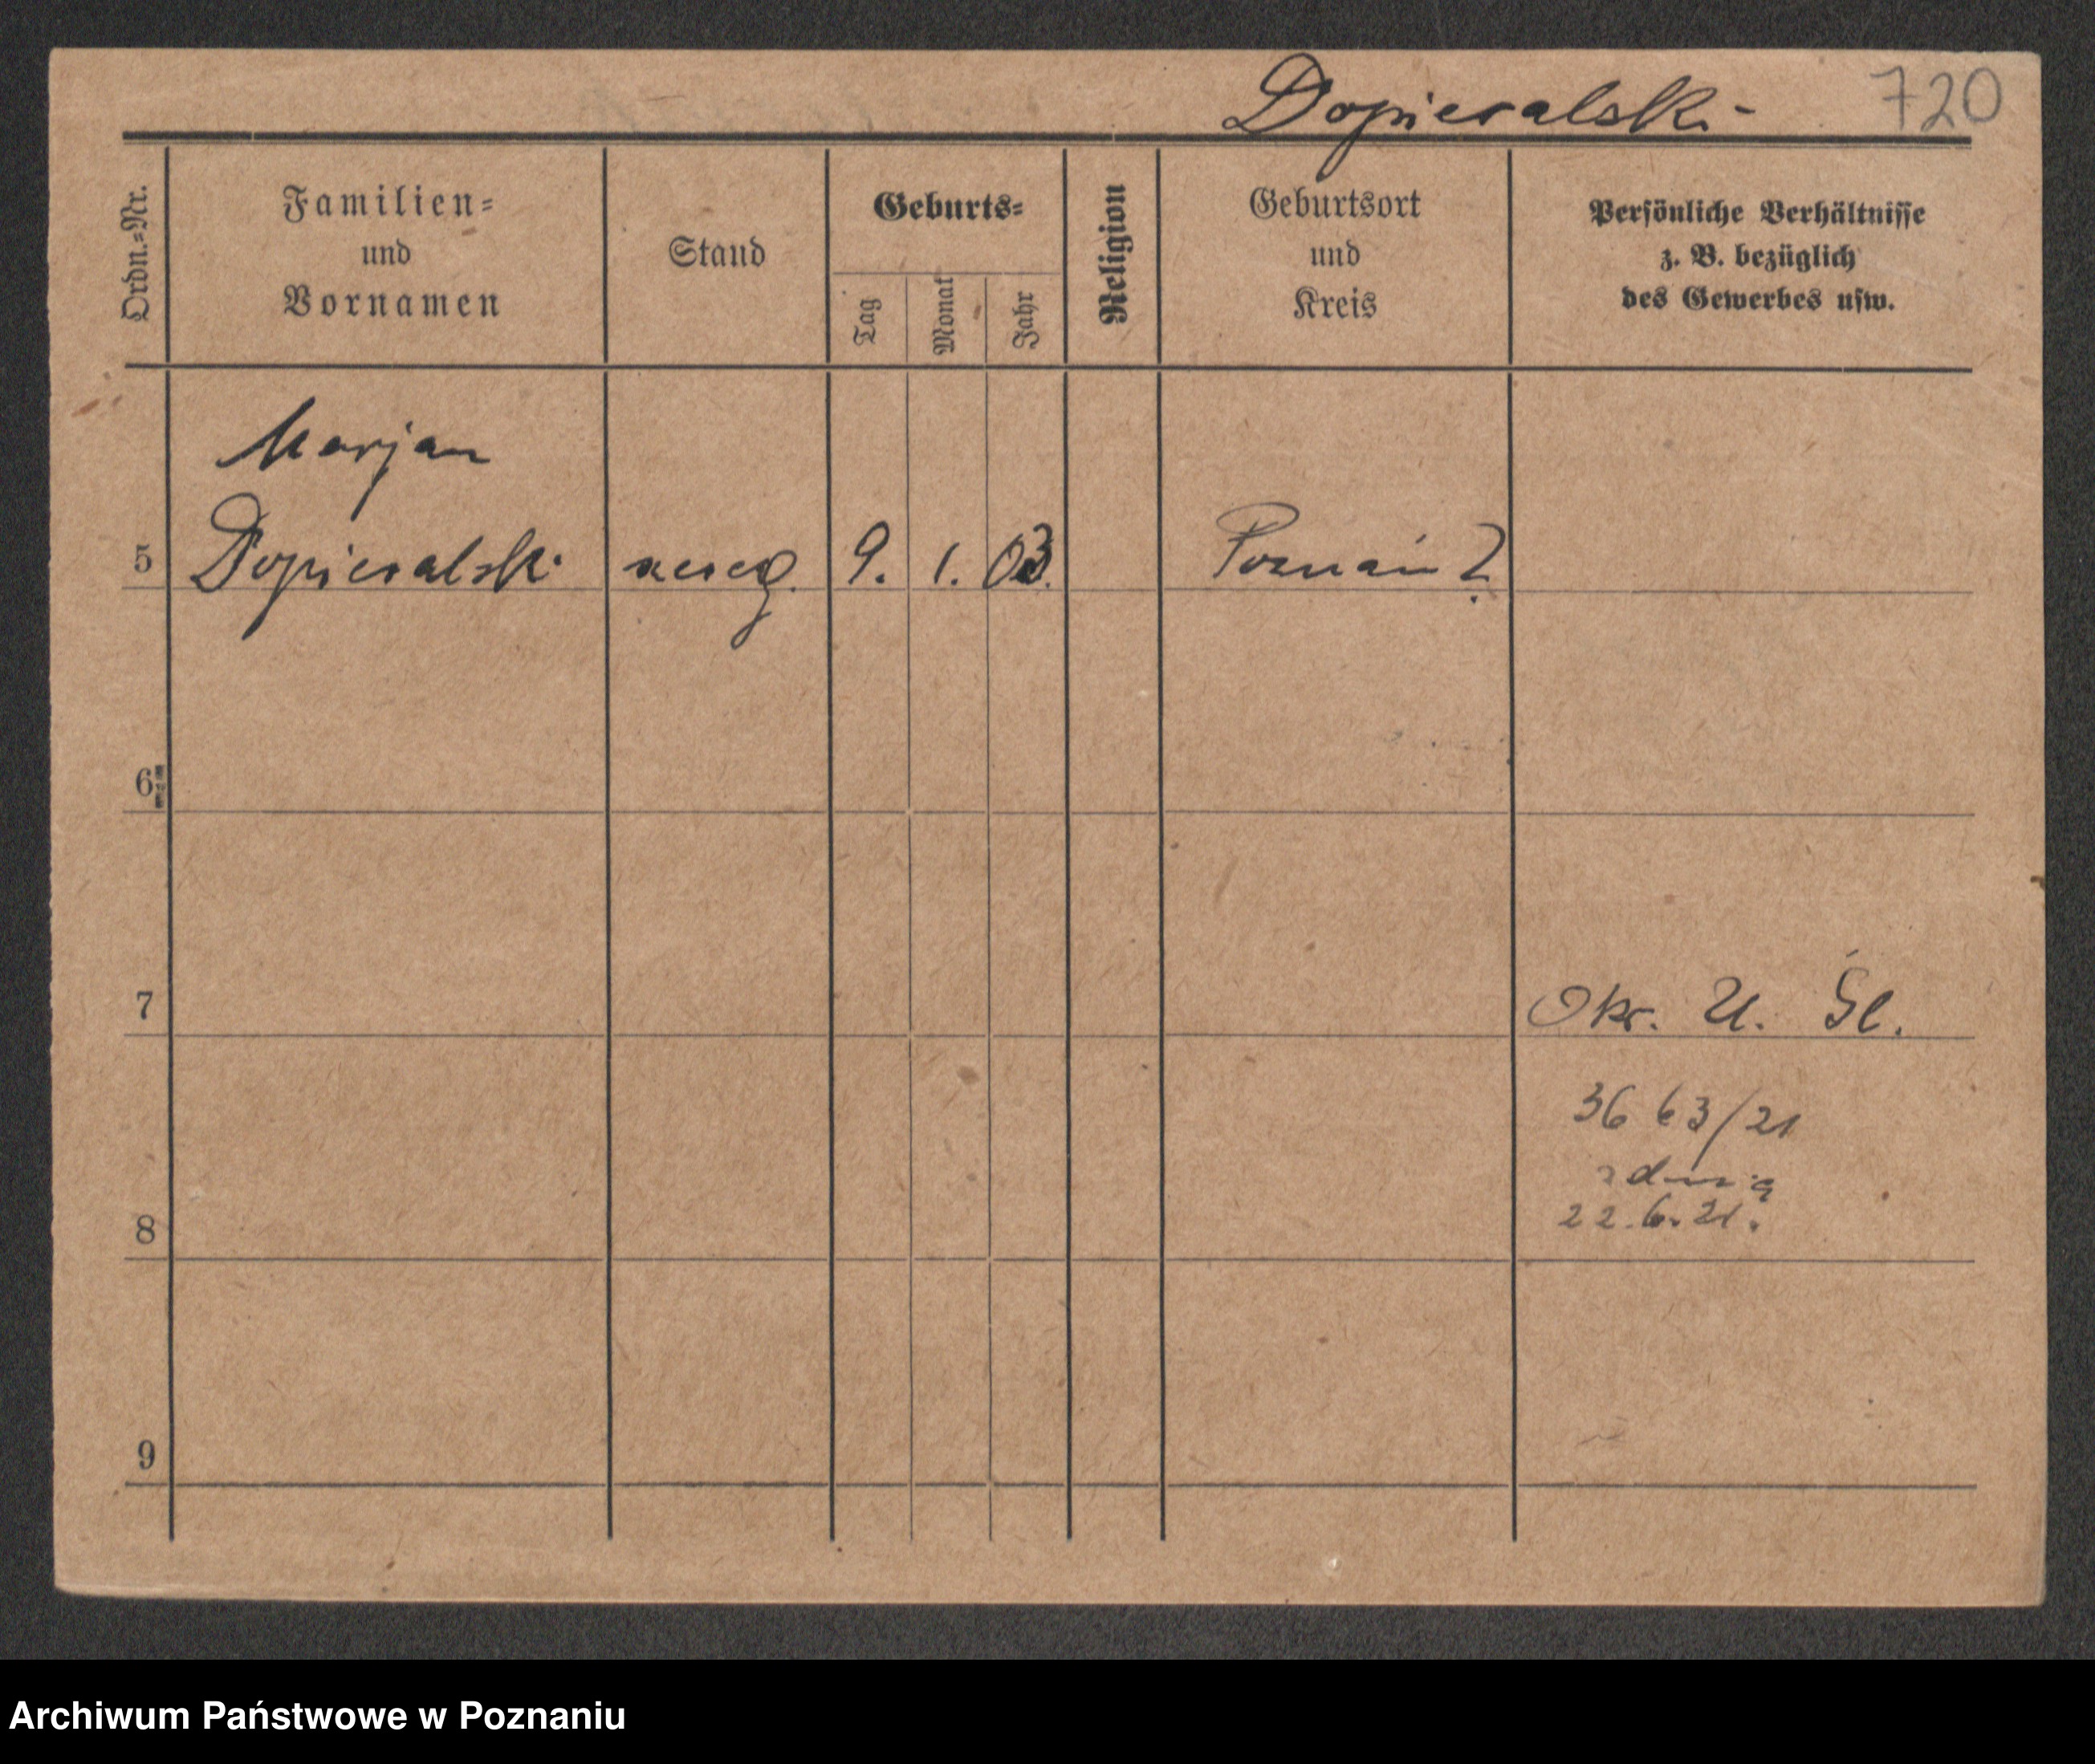 Dopieralski 720
Ordn.-Nr.
Familien-
und
Vornamen
Stand
Geburts-
Tag
Monat
Jahr
Religion
Geburtsort
und
Kreis
Persönliche Verhältnisse
z. B. bezüglich
des Gewerbes usw.
Marjan
5 Dopieralski szereg. 9. 1. 03. Poznań ?
6
7 Okr. U. Śl.
3663/21
z dnia
22.6.21.
8
9
Archiwum Państwowe w Poznaniu